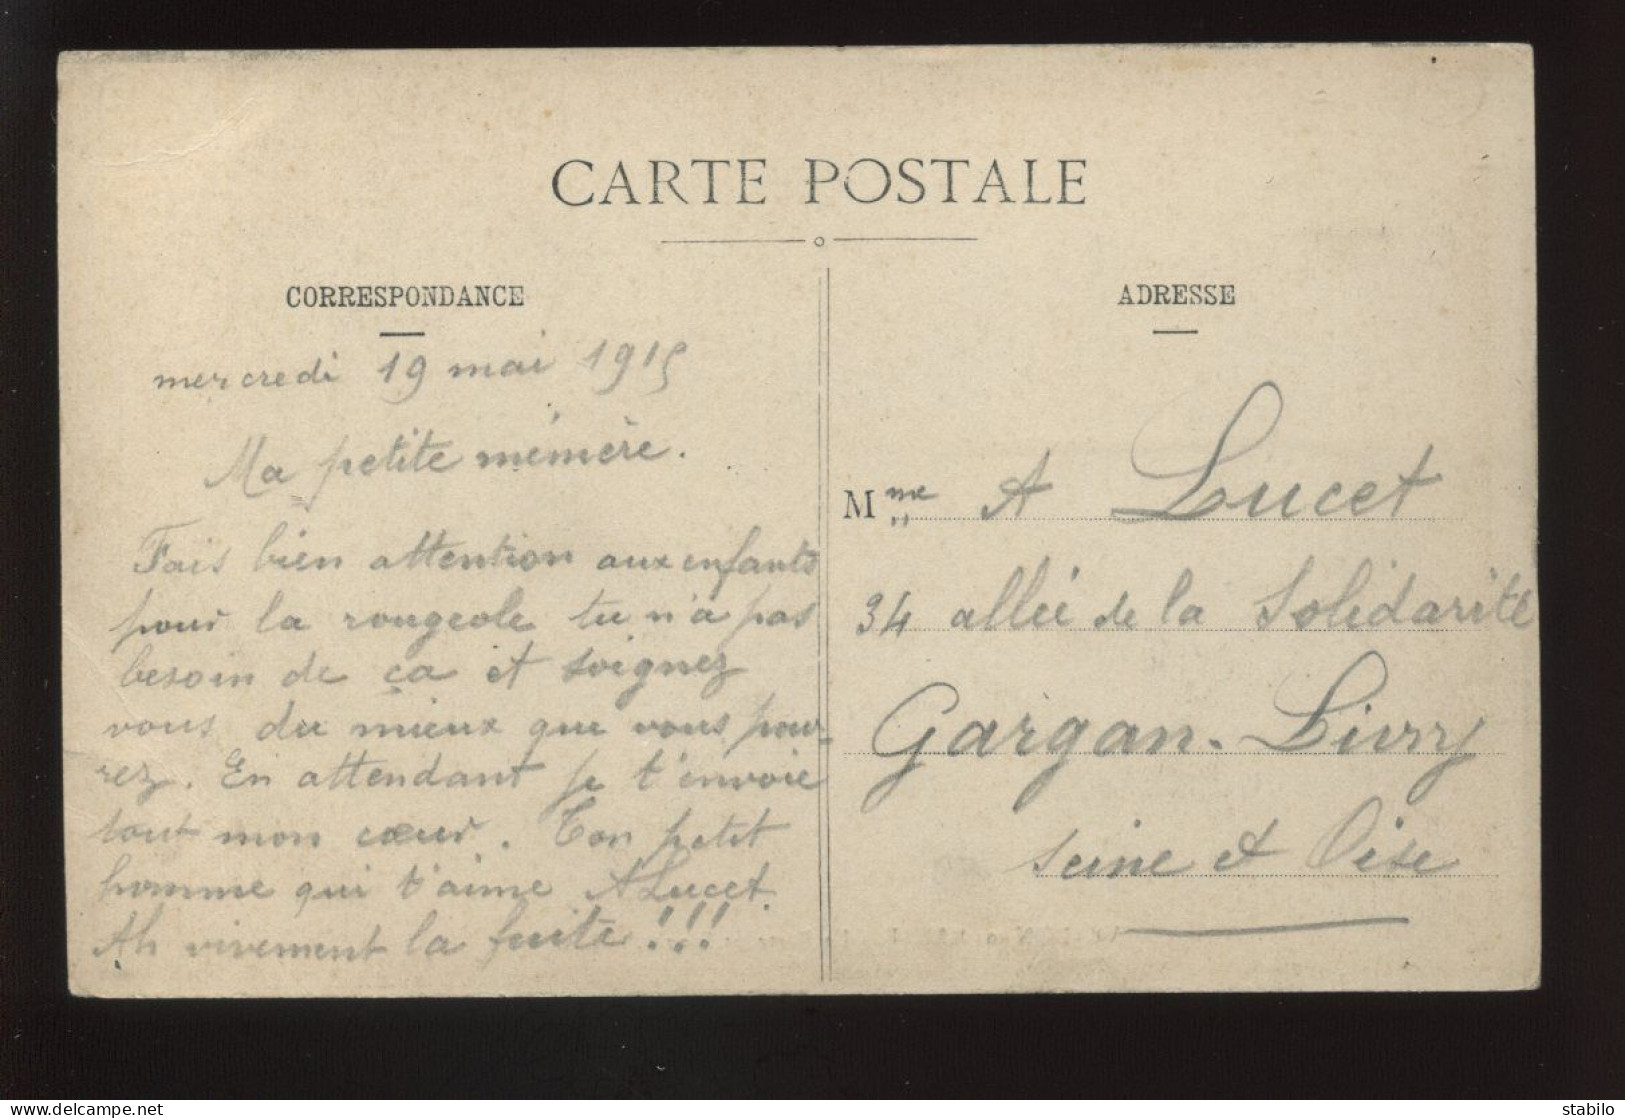 CARTE POSTALE
CORRESPONDANCE
mercredi 19 mai 1915
Ma petite mémère.
Fais bien attention aux enfants
pour la rougeole tu n'a pas
besoin de ça et soignez
vous du mieux que vous pour-
rez. En attendant je t'envoie
tout mon cœur. Ton petit
homme qui t'aime ALucet.
Ah vivement la fuite !!!
ADRESSE
Mme A Lucet
34 allée de la Solidarité
Gargan-Livry
Seine et Oise
delcampe.net
stabilo